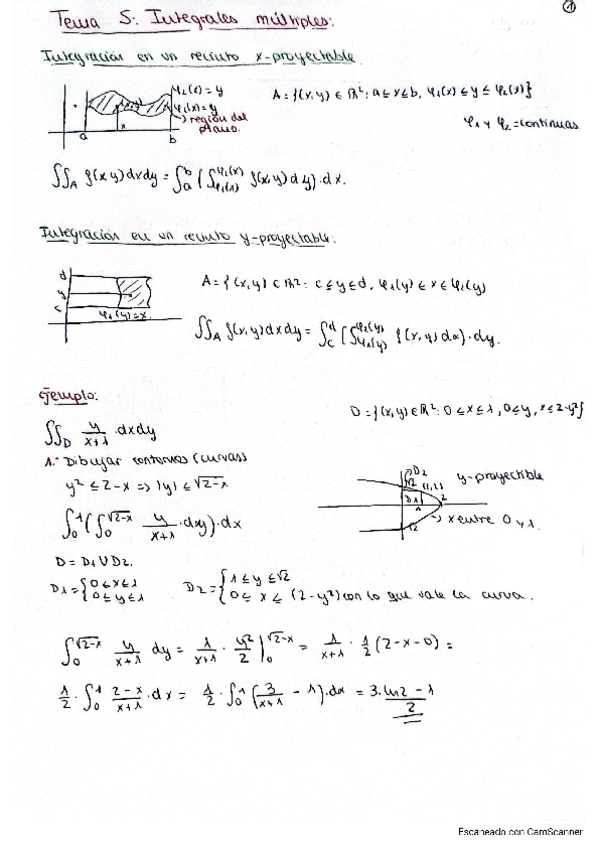 ①
Tema 5: Integrales múltiples:
Integración en un recinto x-proyectable
φ₂(x) = y
φ₁(x) = y
→ región del plano.
a x b
A = {(x,y) ∈ ℝ²: a ≤ x ≤ b, φ₁(x) ≤ y ≤ φ₂(x)}
φ₁ y φ₂ = continuas.
∬_A f(x,y) dxdy = ∫_a^b (∫_{φ₁(x)}^{φ₂(x)} f(x,y) dy)·dx.
Integración en un recinto y-proyectable:
d
y
c
φ₁(y) = x.
A = {(x,y) ∈ ℝ²: c ≤ y ≤ d, φ₁(y) ≤ x ≤ φ₂(y)
∬_A f(x,y) dxdy = ∫_c^d (∫_{φ₁(y)}^{φ₂(y)} f(x,y) dx)·dy.
Ejemplo:
D = {(x,y) ∈ ℝ²: 0 ≤ x ≤ 1, 0 ≤ y, x ≤ 2-y²}
∬_D y/(x+1) · dxdy
1.- Dibujar contornos (curvas)
y² ≤ 2-x => |y| ≤ √(2-x)
∫_0^1 (∫_0^{√(2-x)} y/(x+1) · dy)·dx
D2
√2
(1,1)
D1
1
2
y-proyectible
→ x entre 0 y 1.
D = D1 ∪ D2.
D1 = {0 ≤ x ≤ 1
0 ≤ y ≤ 1
D2 = {1 ≤ y ≤ √2
0 ≤ x ≤ (2-y²) con lo que vale la curva.
∫_0^{√(2-x)} y/(x+1) dy = 1/(x+1) · y²/2 |_0^{√(2-x)} = 1/(x+1) · 1/2 (2-x-0) =
1/2 · ∫_0^1 (2-x)/(x+1) · dx = 1/2 · ∫_0^1 (3/(x+1) - 1)·dx = (3·ln2 - 1)/2
Escaneado con CamScanner